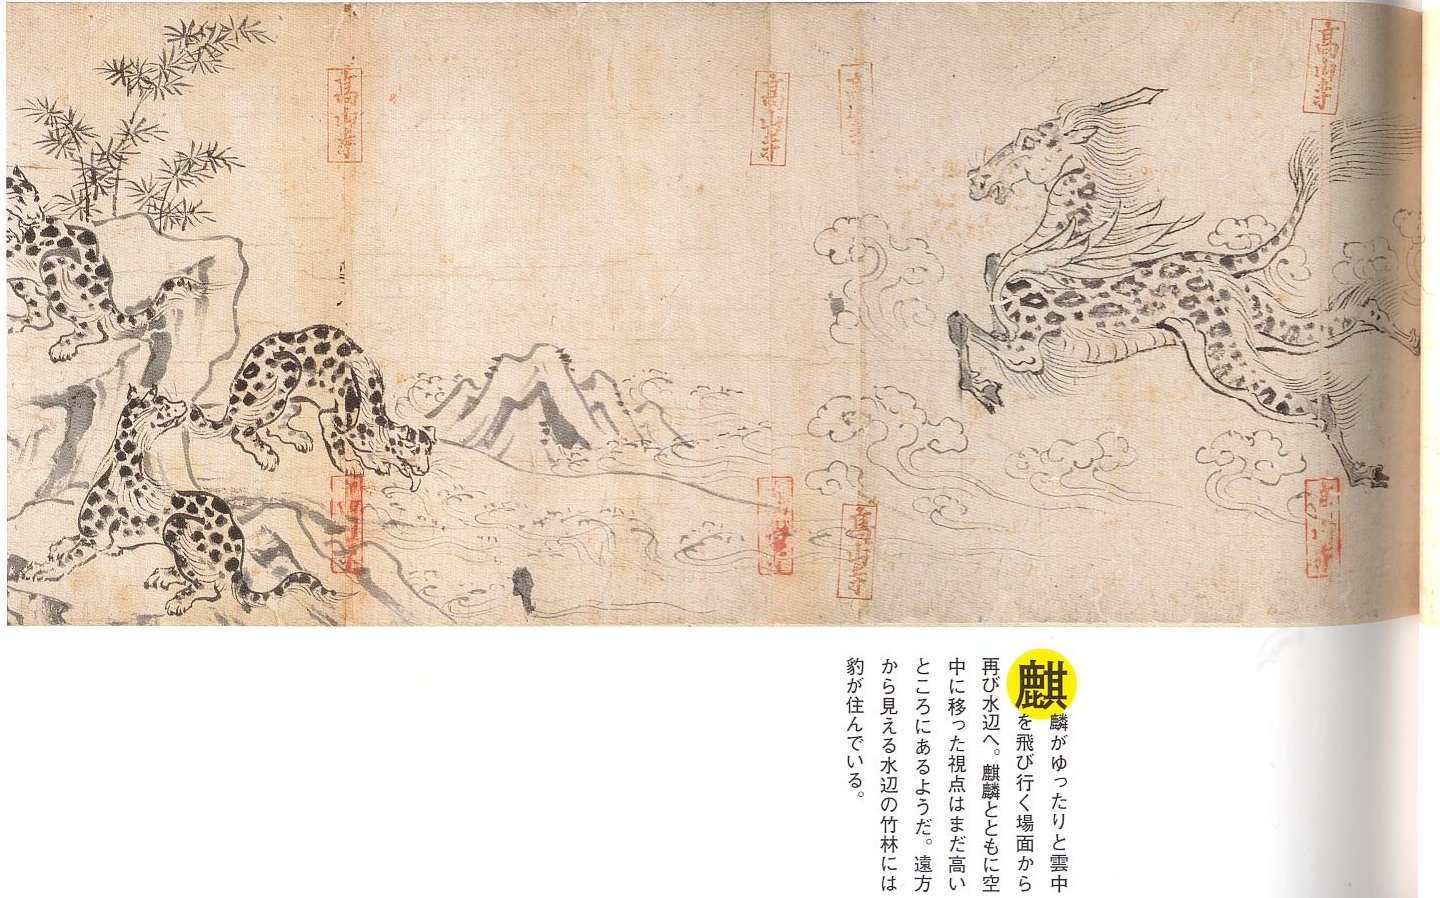 高山寺
高山寺
高山寺
高山寺
高山寺
高山寺
麒麟がゆったりと雲中
を飛び行く場面から
再び水辺へ。麒麟とともに空
中に移った視点はまだ高い
ところにあるようだ。遠方
から見える水辺の竹林には
豹が住んでいる。